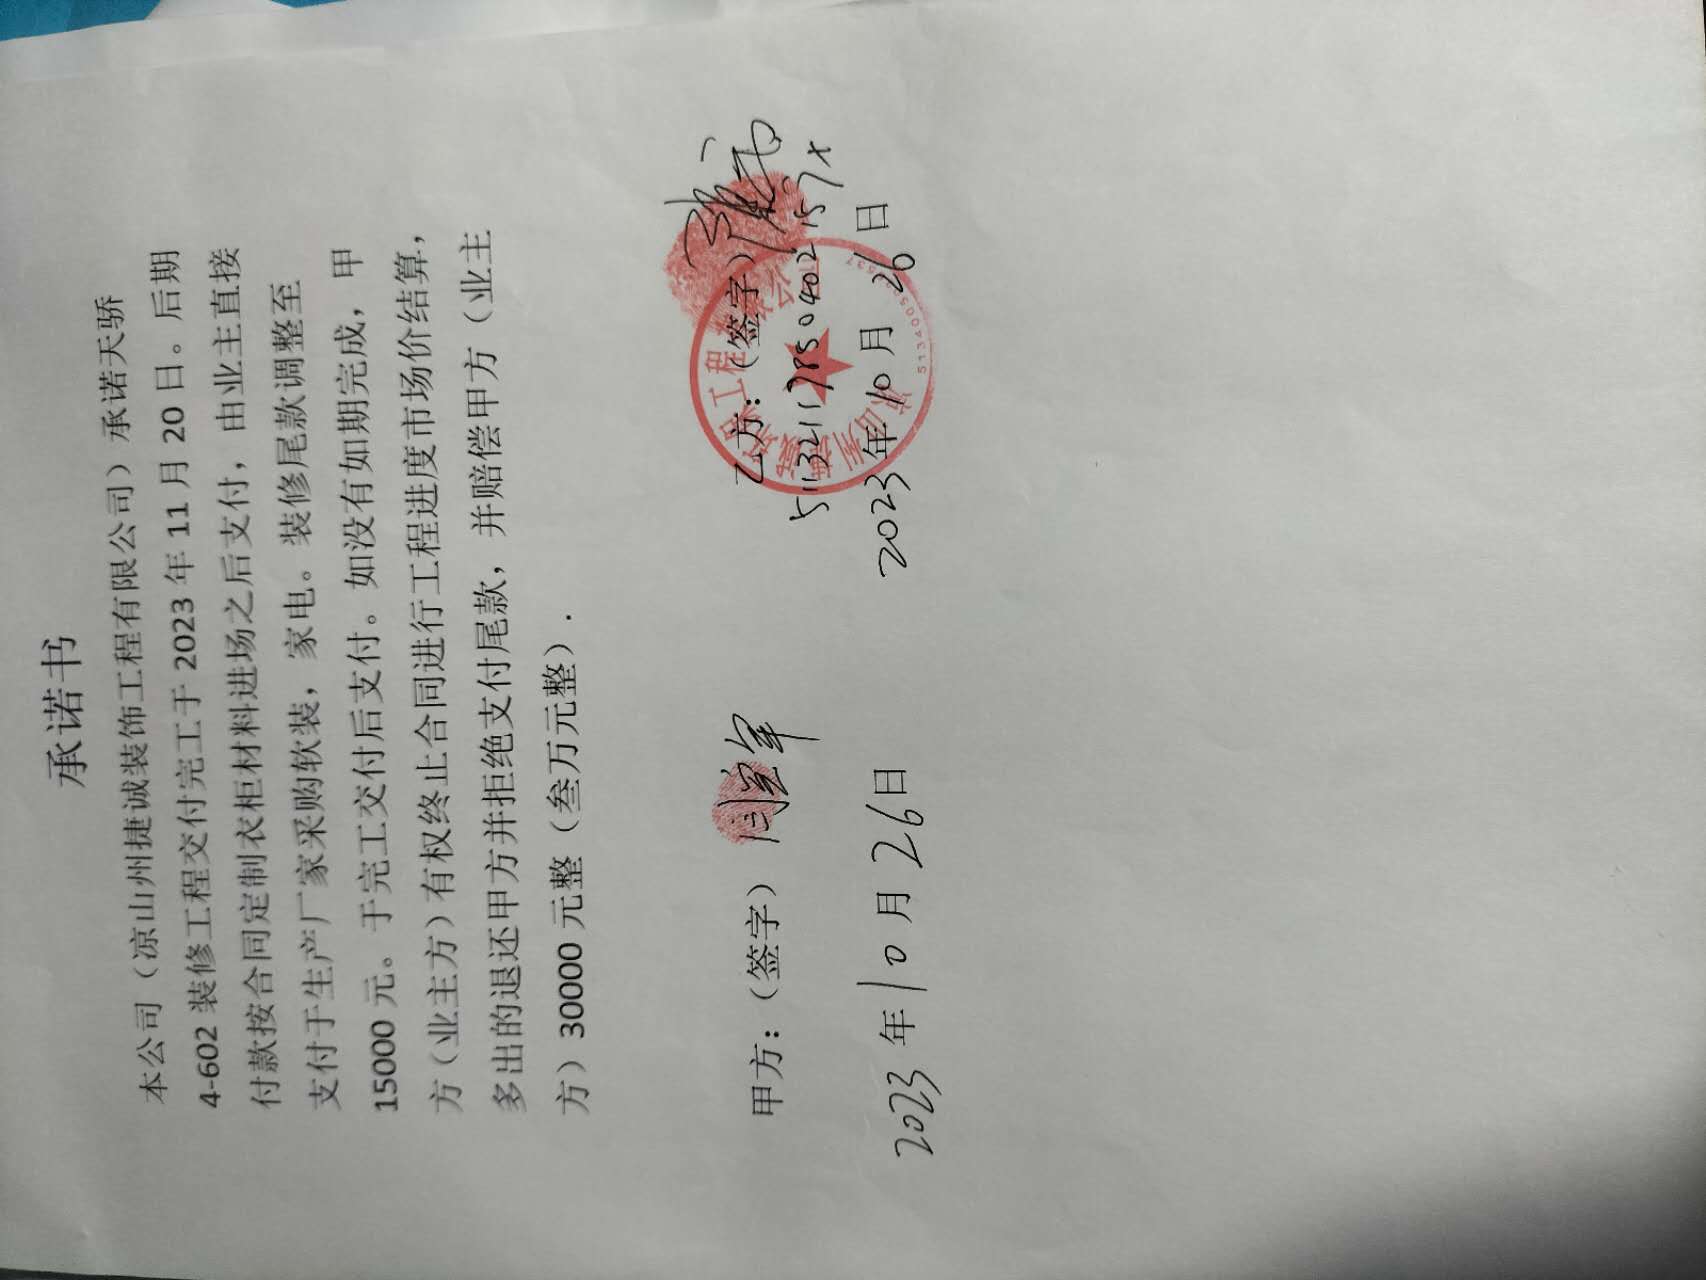 承诺书
本公司（凉山州捷诚装饰工程有限公司）承诺天骄
4-602 装修工程交付完工于 2023 年 11 月 20 日。后期
付款按合同定制衣柜材料进场之后支付，由业主直接
支付于生产厂家采购软装，家电。装修尾款调整至
15000 元。于完工交付后支付。如没有如期完成，甲
方（业主方）有权终止合同进行工程进度市场价结算，
多出的退还甲方并拒绝支付尾款，并赔偿甲方（业主
方）30000 元整（叁万元整）.
甲方：（签字）
2023 年 10 月 26 日
乙方：（签字）
2023 年 10 月 26 日